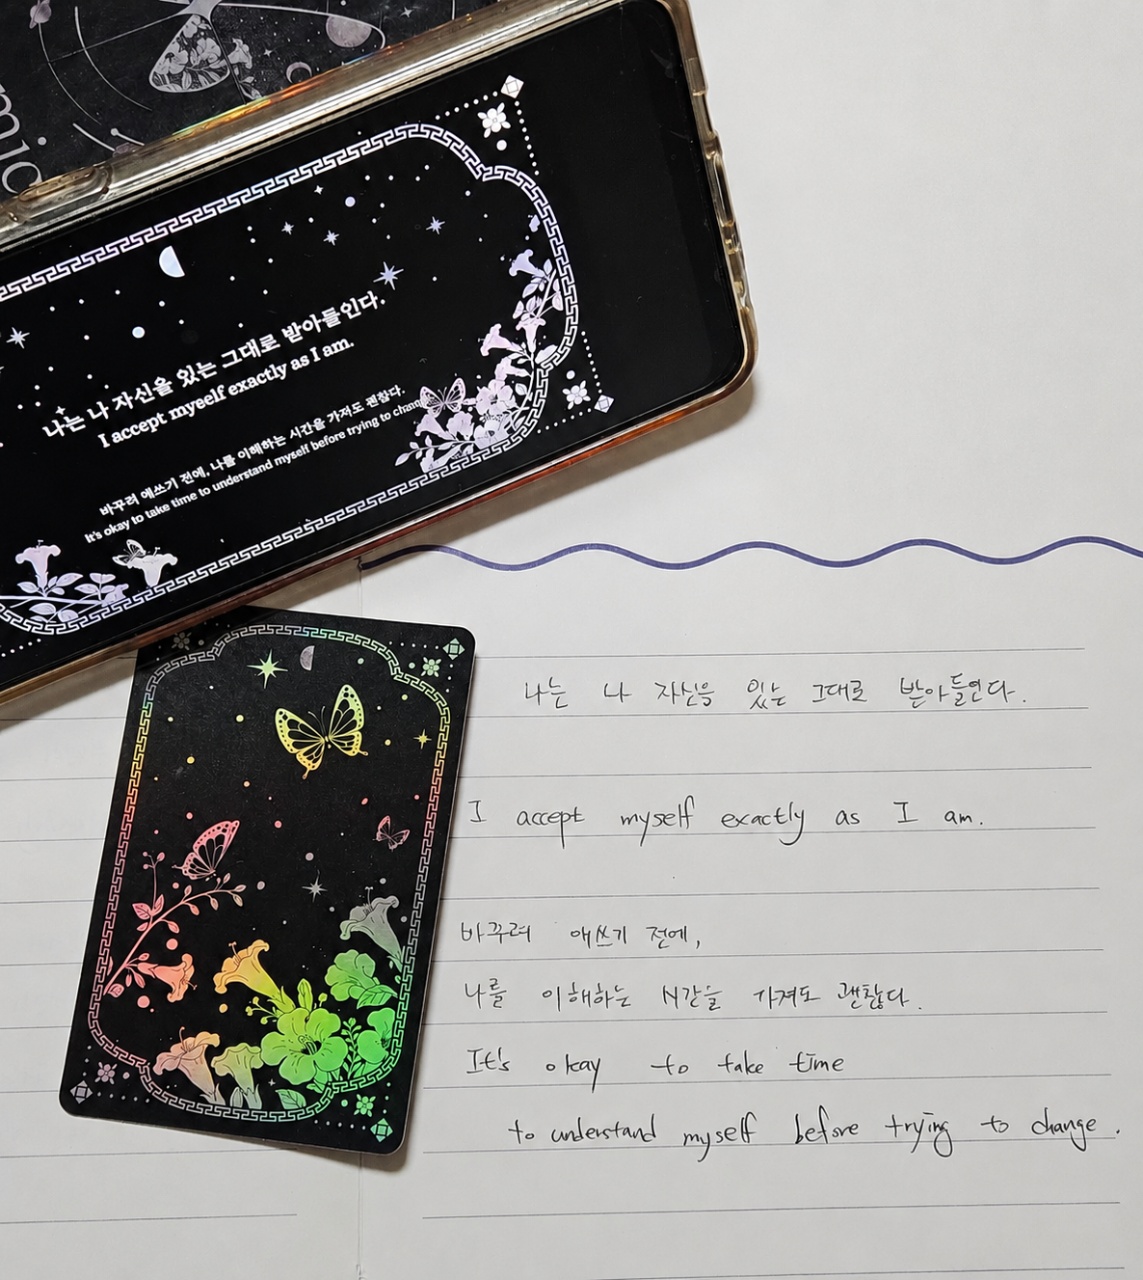 나는 나 자신을 있는 그대로 받아들인다.
I accept myself exactly as I am.
바꾸려 애쓰기 전에, 나를 이해하는 시간을 가져도 괜찮다.
It's okay to take time to understand myself before trying to chan
나는 나 자신을 있는 그대로 받아들인다.
I accept myself exactly as I am.
바꾸려 애쓰기 전에,
나를 이해하는 시간을 가져도 괜찮다.
It's okay to take time
to understand myself before trying to change.